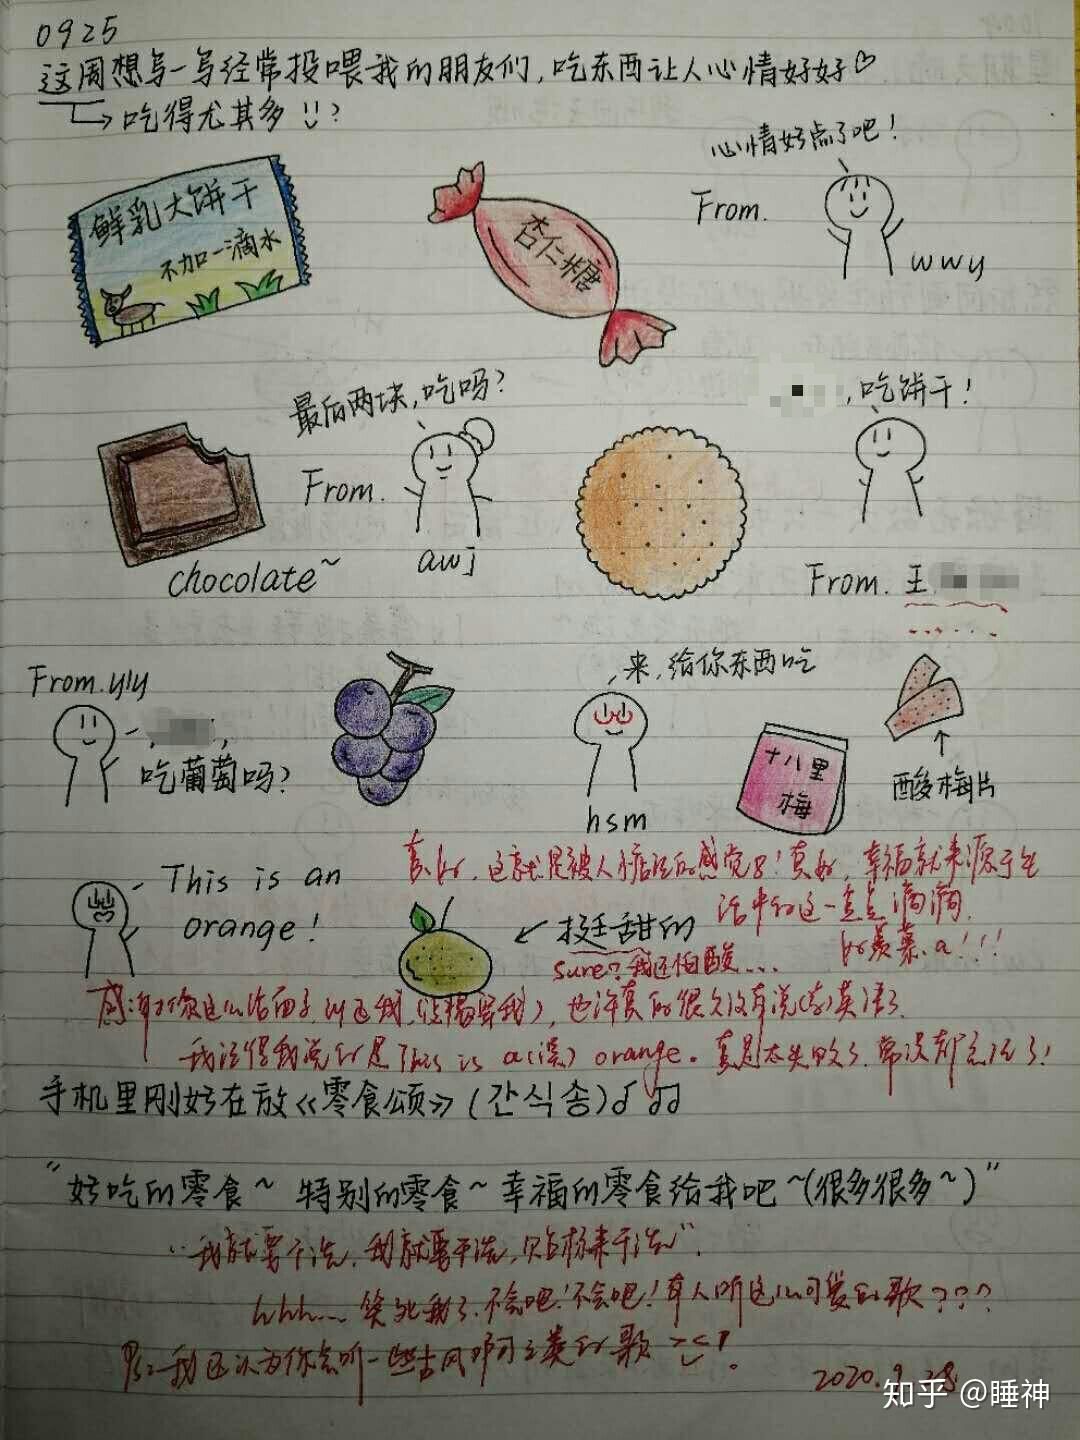 0925
这周想写一写经常投喂我的朋友们，吃东西让人心情好好♡
→吃得尤其多 !!?
鲜乳大饼干
不加一滴水
杏仁糖
心情好点了吧！
From.
wwy
最后两块，吃吗？
From.
awj
chocolate~
，吃饼干！
From. 王
From. yly
，吃葡萄吗？
，来，给你东西吃
hsm
十八里梅
酸梅片
This is an
orange!
真好，这就是被人惦记的感觉吧！真好，幸福就来源于生
活中的这一点点滴滴，
好羡慕.a!!!
挺甜的
sure？我还怕酸...
也许真的很久没有说英语了
我记得我说的是This is a(误) orange。真是太失败了，常识都忘记了！
手机里刚好在放《零食颂》(간식송)♩♫
“好吃的零食~ 特别的零食~ 幸福的零食给我吧~(很多很多~)”
hhh... 笑死我了，不会吧！不会吧！有人听这么可爱的歌？？？
我还以为你会听一些古风啊之类的歌 ><！
2020.9.28
知乎 @睡神